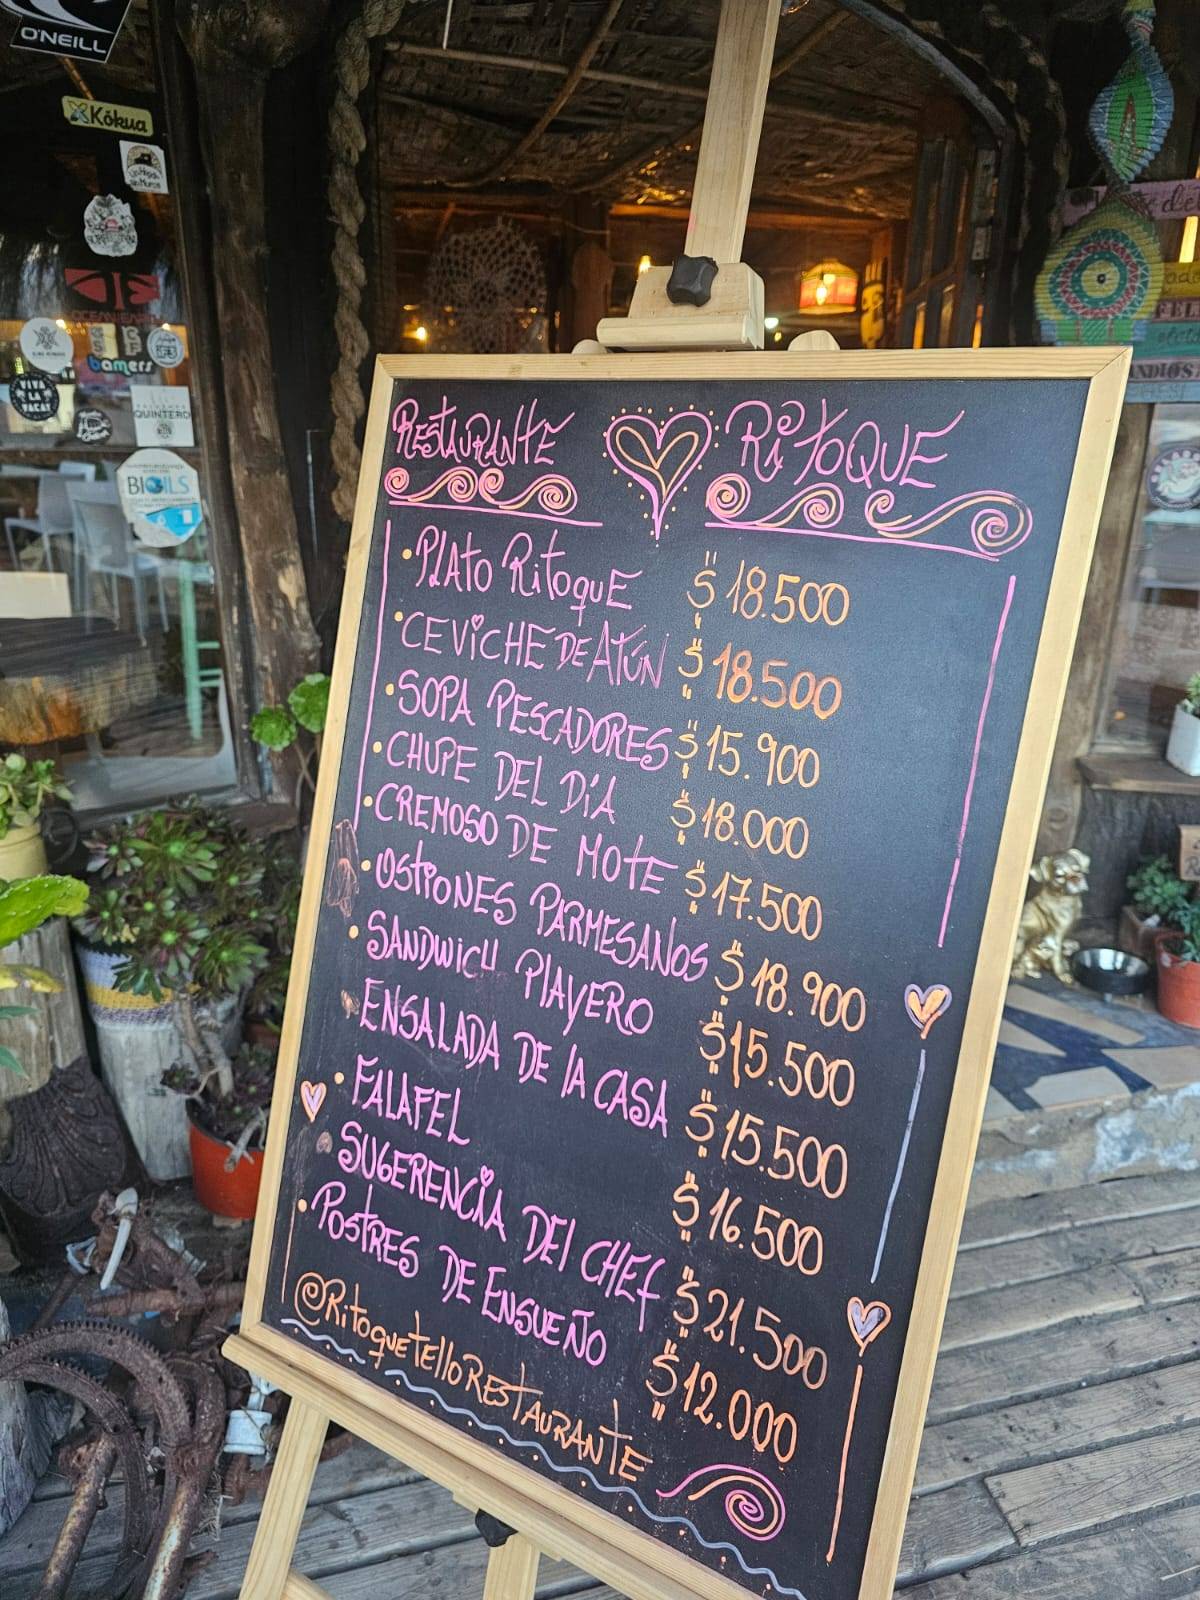 O'NEILL
Kōkua
bamers
VIVA
LA
QUINTERO
BIOILS
RESTAURANTE RiTOQUE
•PLATO RitoquE $18.500
•CEVICHE DE ATÚN $18.500
•SOPA PESCADORES $15.900
•CHUPE DEL DíA $18.000
•CREMOSO DE MOTE $17.500
•OStiONES PARMESANOS $18.900
•SANDWICH PlAyERO $15.500
ENSALADA DE lA CASA $15.500
•FALAFEL $16.500
SUGERENCiA DEl CHEf $21.500
•POStRES DE ENSUEÑO $12.000
@RitoquetelloRESTAURANTE